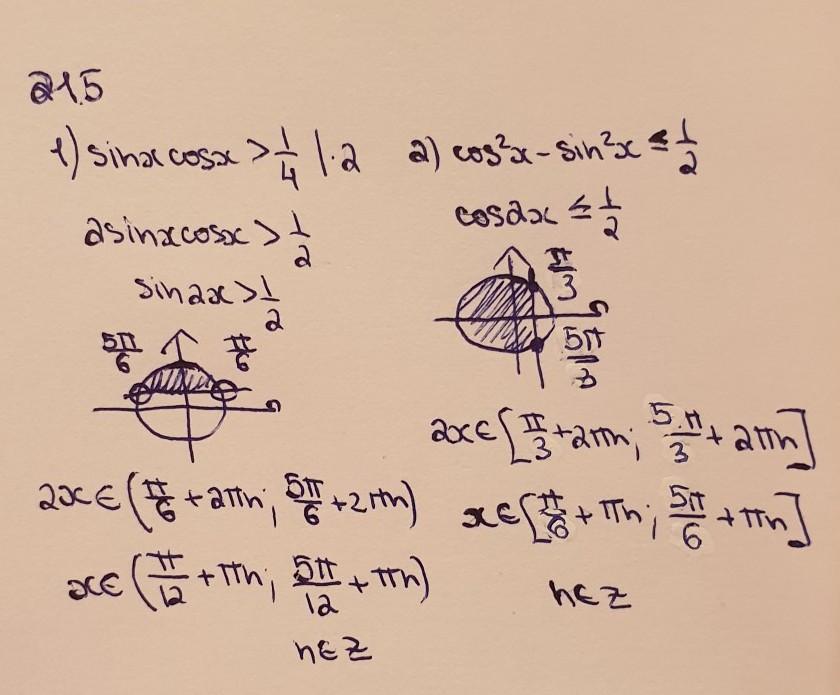 215
1) sinx cosx > 1/4 | · 2
2sinx cosx > 1/2
sin2x > 1/2
5π/6 π/6
2x ∈ (π/6 + 2πn; 5π/6 + 2πn)
x ∈ (π/12 + πn; 5π/12 + πn)
n ∈ Z
2) cos²x - sin²x ≤ 1/2
cos2x ≤ 1/2
π/3
5π/3
2x ∈ [π/3 + 2πn; 5π/3 + 2πn]
x ∈ [π/6 + πn; 5π/6 + πn]
n ∈ Z